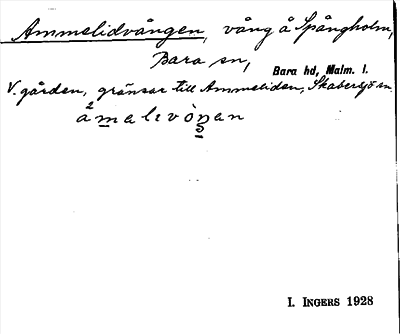 Ammelidvången, vång å Spångholm,
Bara sn,
Bara hd, Malm. l.
V. gården, gränsar till Ammeliden, Skabersjö sn.
I. INGERS 1928